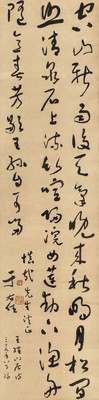 空山新雨後天氣晚來秋明月松間
照清泉石上流竹喧歸浣女蓮動下漁舟
隨意春芳歇王孫自可留
先生
王維山居
于右任